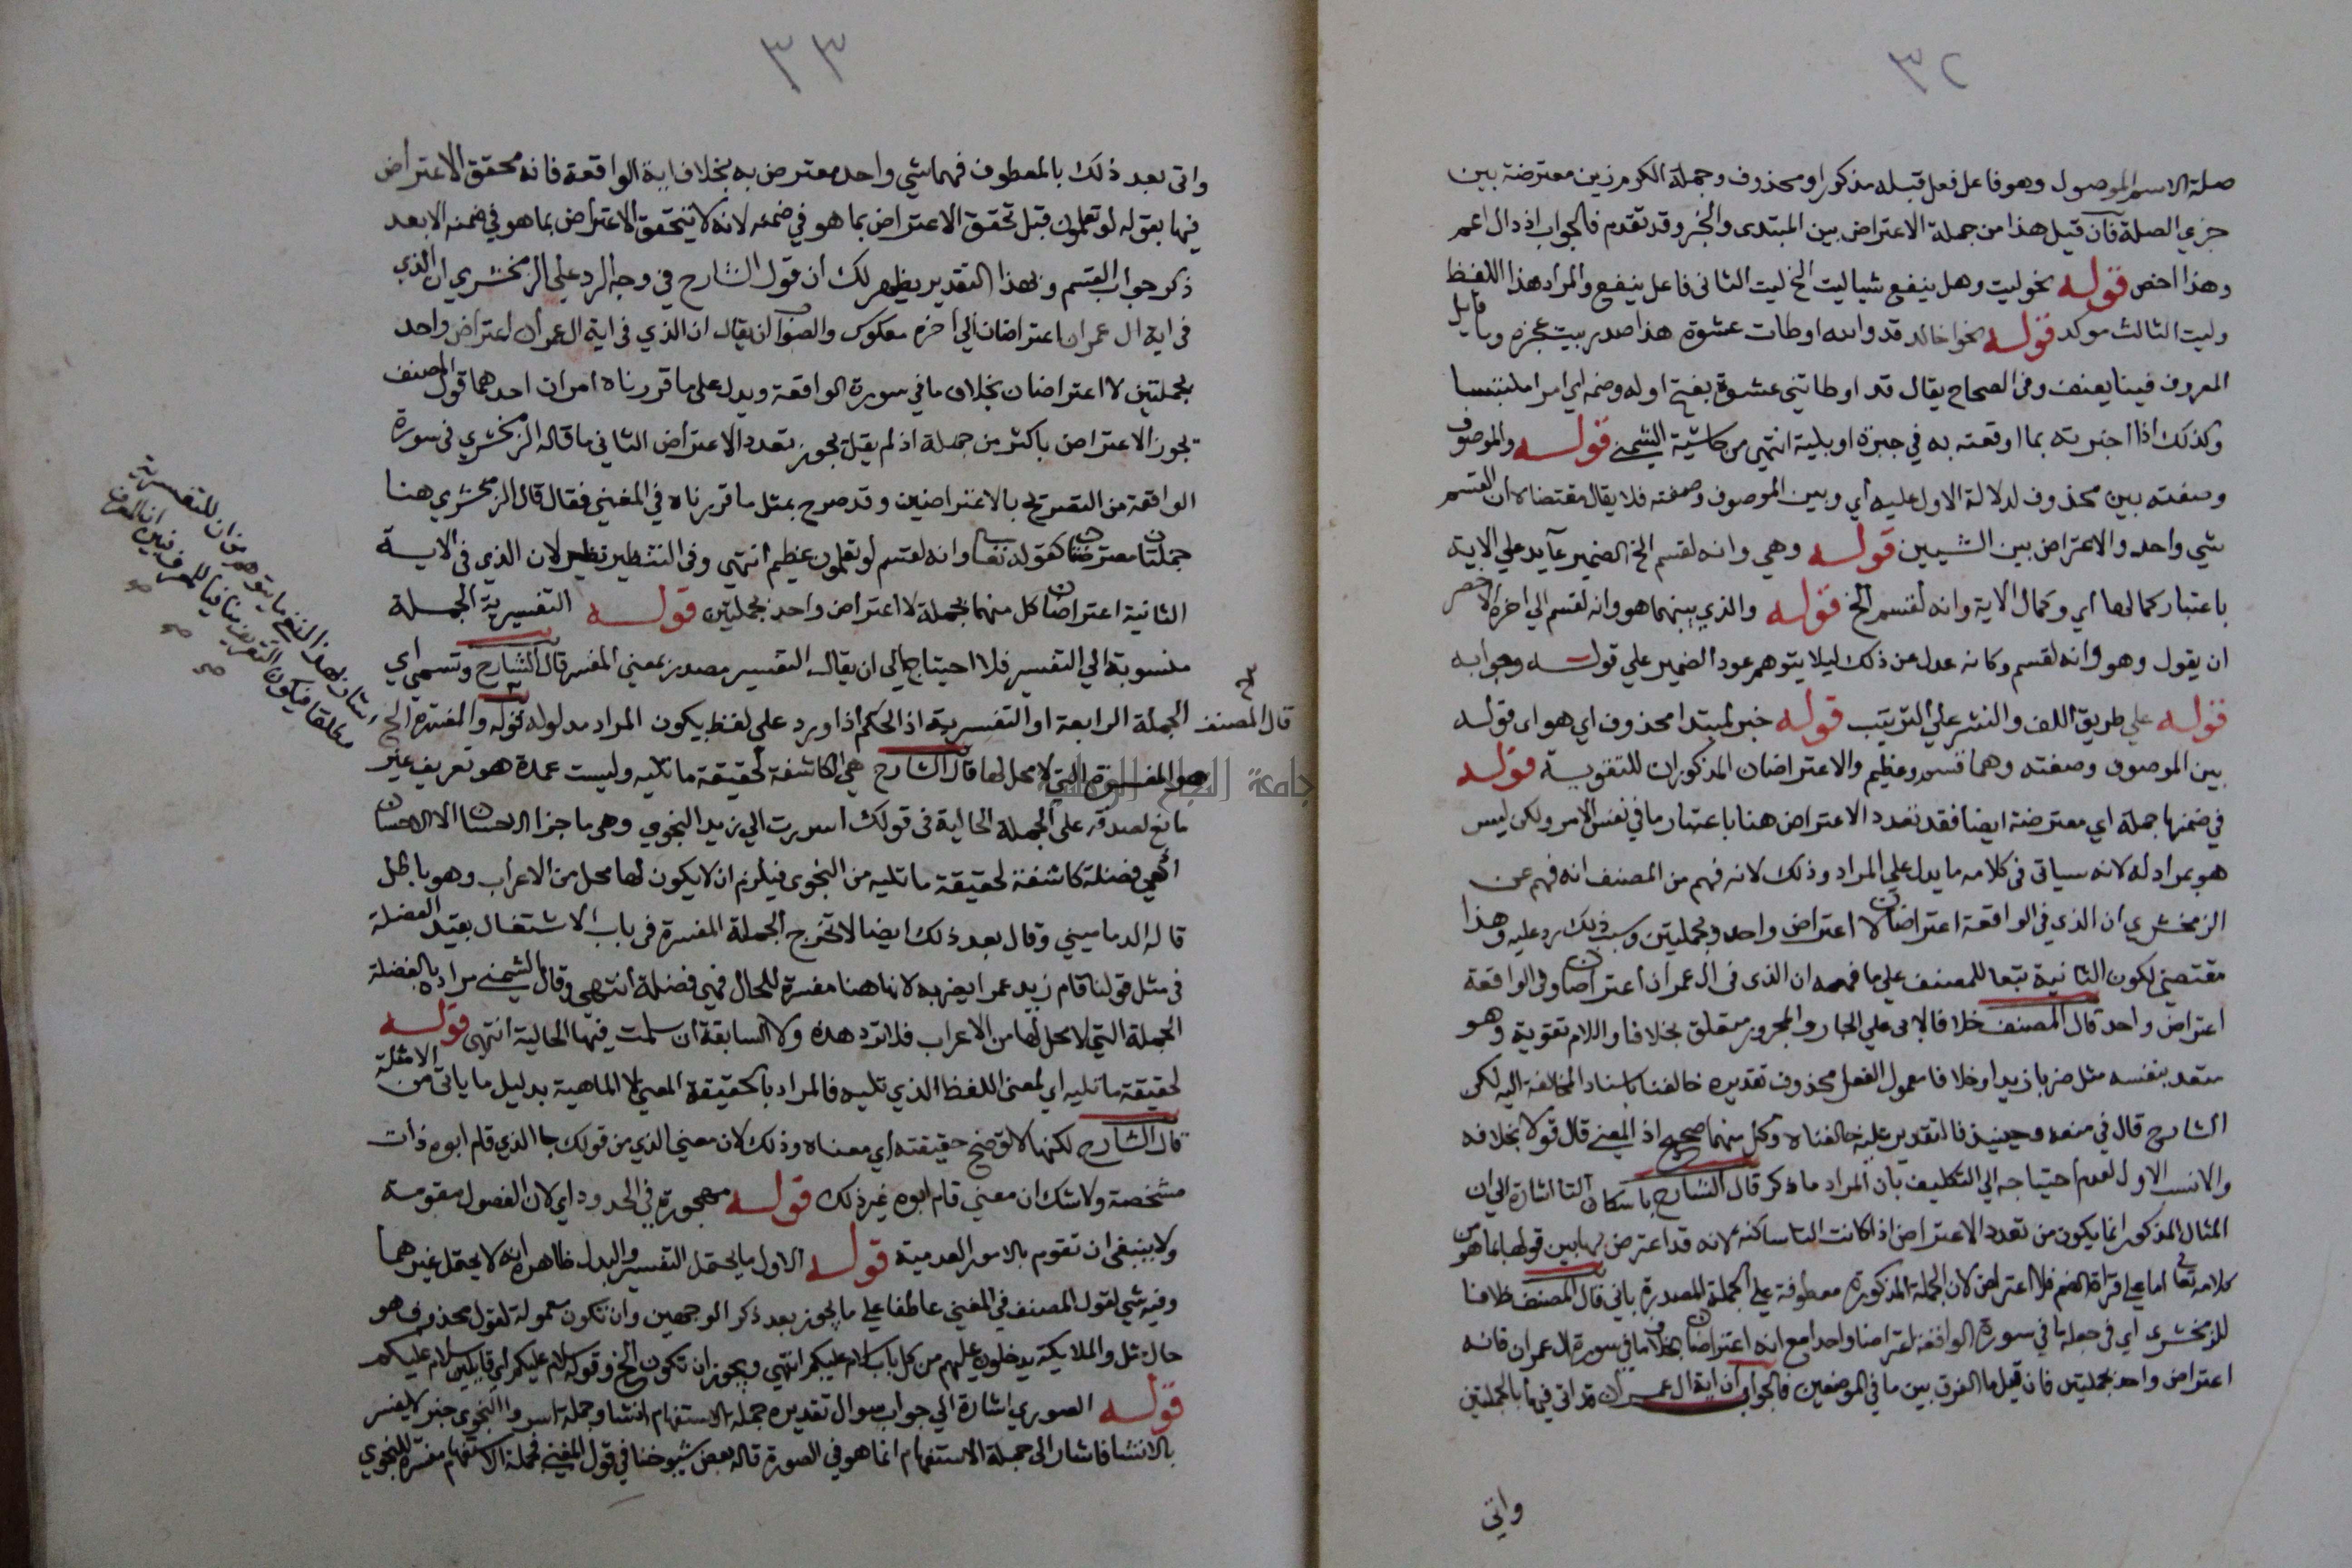 ٣٢
صلة الاسم الموصول وهو فاعل فعل قبله مذكورا ومحذوف وجملة الكرم زين معترضة بين
جزي الصلة فان قيل هذا من جملة الاعتراض بين المبتدى والخبر وقد تقدم فالجواب اذ دال اعم
وهذا اخص قوله نحو ليت وهل ينفع شيا ليت الخ ليت الثانى فاعل ينفع والمراد هذا اللفظ
وليت الثالث موكد قوله نحو اخالد قد والله اوطات عشوة هذا صدر بيت عجزه وما قايل
المعروف فينا يعنف وفى الصحاح يقال قد اوطاتني عشوة بفتح اوله وضمه اي امرا ملتبسا
وكذلك اذا اخبرته بما اوقعته به في حيرة او بلية انتهى من حاشية الشمني قوله والموصوف
وصفته بين محذوف لدلالة الاول عليه أي وبين الموصوف وصفته فلا يقال مقتضاه ان القسم
شي واحد والاعتراض بين الشيين قوله وهي وانه لقسم الخ الضمير عايد علي الاية
باعتبار كمالها اي وكمال الاية وانه لقسم الخ قوله والذي بينهما هو وانه لقسم الي اخره الاخصر
ان يقول وهو وانه لقسم وكانه عدل عن ذلك ليلا يتوهم عود الضمير علي قوله وجوابه
قوله علي طريق اللف والنشر علي الترتيب قوله خبر لمبتدا محذوف اي هو اى قوله
بين الموصوف وصفته وهما قسم وعظيم والاعتراضان المذكوران للتقوية قوله
في ضمنها جملة اي معترضة ايضا فقد تعدد الاعتراض هنا باعتبار ما في نفس الامر ولكن ليس
هو بمراد له لانه سياتى فى كلامه ما يدل علي المراد وذلك لانه فهم من المصنف انه فهم عن
الزمخشري ان الذي في الواقعة اعتراضان لا اعتراض واحد وبجملتين وسبب ذلك رد عليه وهذا
مقتضي لكون الثانية تبعا للمصنف علي ما فهمه ان الذى فى ال عمران اعتراضان وفى الواقعة
اعتراض واحد قال المصنف خلافا لابى علي الجار والمجرور متعلق بخلافا واللام تقوية وهو
متعد بنفسه مثل ضربا زيدا وخلافا معمول الفعل محذوف تقديره خالفنا باسناد المخالفة اليه لكن
الشارح قال في منعه وحينيذ فالتقدير عليه خالفناه وكل منهما صحيح اذ المعنى قال قولا بخلافه
والانسب الاول لعدم احتياجه الي التكليف بان المراد ما ذكر قال الشارح باسكان التا اشارة الي ان
المثال المذكور انما يكون من تعدد الاعتراض اذا كانت التا ساكنة لانه قد اعترض بها بين قولها بما هو من
كلامه تعالى اما على قراة الضم فلا اعتراض لان الجملة المذكورة معطوفة علي الجملة المصدرة باني قال المصنف خلافا
للزمخشرى اي فى جعله ما في سورة الواقعة اعتراضا واحدا مع انه اعتراضان بخلاف ما في سورة ال عمران فانه
اعتراض واحد بجملتين فان قيل ما الفرق بين ما في الموضعين فالجواب ان اية ال عمران قد اتى فيها بالجملتين
واتي
٣٣
واتى بعد ذلك بالمعطوف فهما شي واحد معترض به بخلاف اية الواقعة فانه محقق الاعتراض
فيها بقوله لو تعلمون قبل تحقق الاعتراض بما هو في ضمنه لانه لا يتحقق الاعتراض بما هو في ضمنه الا بعد
ذكر جواب القسم وبهذا التقدير يظهر لك ان قول الشارح في وجه الرد علي الزمخشري ان الذي
فى اية ال عمران اعتراضان الي اخره معكوس والصواب ان يقال ان الذي فى اية ال عمران اعتراض واحد
بجملتين لا اعتراضان بخلاف ما في سورة الواقعة ويدل على ما قررناه امران احدهما قول المصنف
يجوز الاعتراض باكثر من جملة اذ لم يقل يجوز تعدد الاعتراض الثاني ما قاله الزمخشري فى سورة
الواقعة من التصريح بالاعتراضين وقد صرح بمثل ما قررناه في المغني فقال قال الزمخشري هنا
جملتان معترضتان كقوله تعالى وانه لقسم لو تعلمون عظيم انتهى وفى التنظير نظر لان الذي فى الاية
الثانية اعتراضان كل منهما بجملة لا اعتراض واحد بجملتين قوله التفسيرية الجملة
منسوبة الي التفسير فلا احتياج الي ان يقال التفسير مصدر بمعني المفسر قال الشارح وتسمى اي
قال المصنف الجملة الرابعة او التفسيرية اذ الحكم اذا ورد على لفظ يكون المراد مدلوله قوله والمفسرة الخ
هو المفسرة التي لا محل لها قال الشارح هي الكاشفة لحقيقة ما تليه وليست عمدة هو تعريف غير
مانع لصدقه على الجملة الحالية فى قولك اسررت الي زيد النجوي وهى ما جزا الاحسان الا الاحسان
اذ هي فضلة كاشفة لحقيقة ما تليه من النجوى فيلزم ان لا يكون لها محل من الاعراب وهو باطل
قاله الدماميني وقال بعد ذلك ايضا لا تخرج الجملة المفسرة فى باب الاشتغال بقيد الفضلة
فى مثل قولنا قام زيد عمرا يضربه لانها هنا مفسرة للحال فهي فضلة انتهى وقال الشمني مراده بالفضلة
الجملة التي لا محل لها من الاعراب فلا ترد هذه ولا السابقة ان سلمت فيها الحالية انتهى قوله
لحقيقة ما تليه اي لمعنى اللفظ الذي تليه فالمراد بالحقيقة المعنى لا الماهية بدليل ما ياتى من الامثلة
قال الشارح لكنها لا توضح حقيقته اي معناه وذلك لان معني الذي من قولك جا الذي قام ابوه ذات
مشخصة ولا شك ان معني قام ابوه غير ذلك قوله مهجورة في الحدود اي لان الفصول مقومة
ولا ينبغى ان تقوم بالامور العدمية قوله الاول ما يحتمل التفسير والبدل ظاهره انه لا يحتمل غيرهما
وفيه شي لقول المصنف في المغني عاطفا على ما يجوز بعد ذكر الوجهين وان تكون معمولة لقول محذوف هو
حال مثل والملايكة يدخلون عليهم من كل باب سلام عليكم انتهي ويجوز ان تكون الخ وقوله سلام عليكم اي قايلين سلام عليكم
قوله الصوري اشارة الي جواب سوال تقديره جملة الاستفهام انشا وجملة اسروا النجوى خبر لا يفسر
بالانشا فاشار الى جملة الاستفهام انما هو في الصورة قاله بعض شيوخنا في قول المغني فجملة الاستفهام مفسرة للنجوي